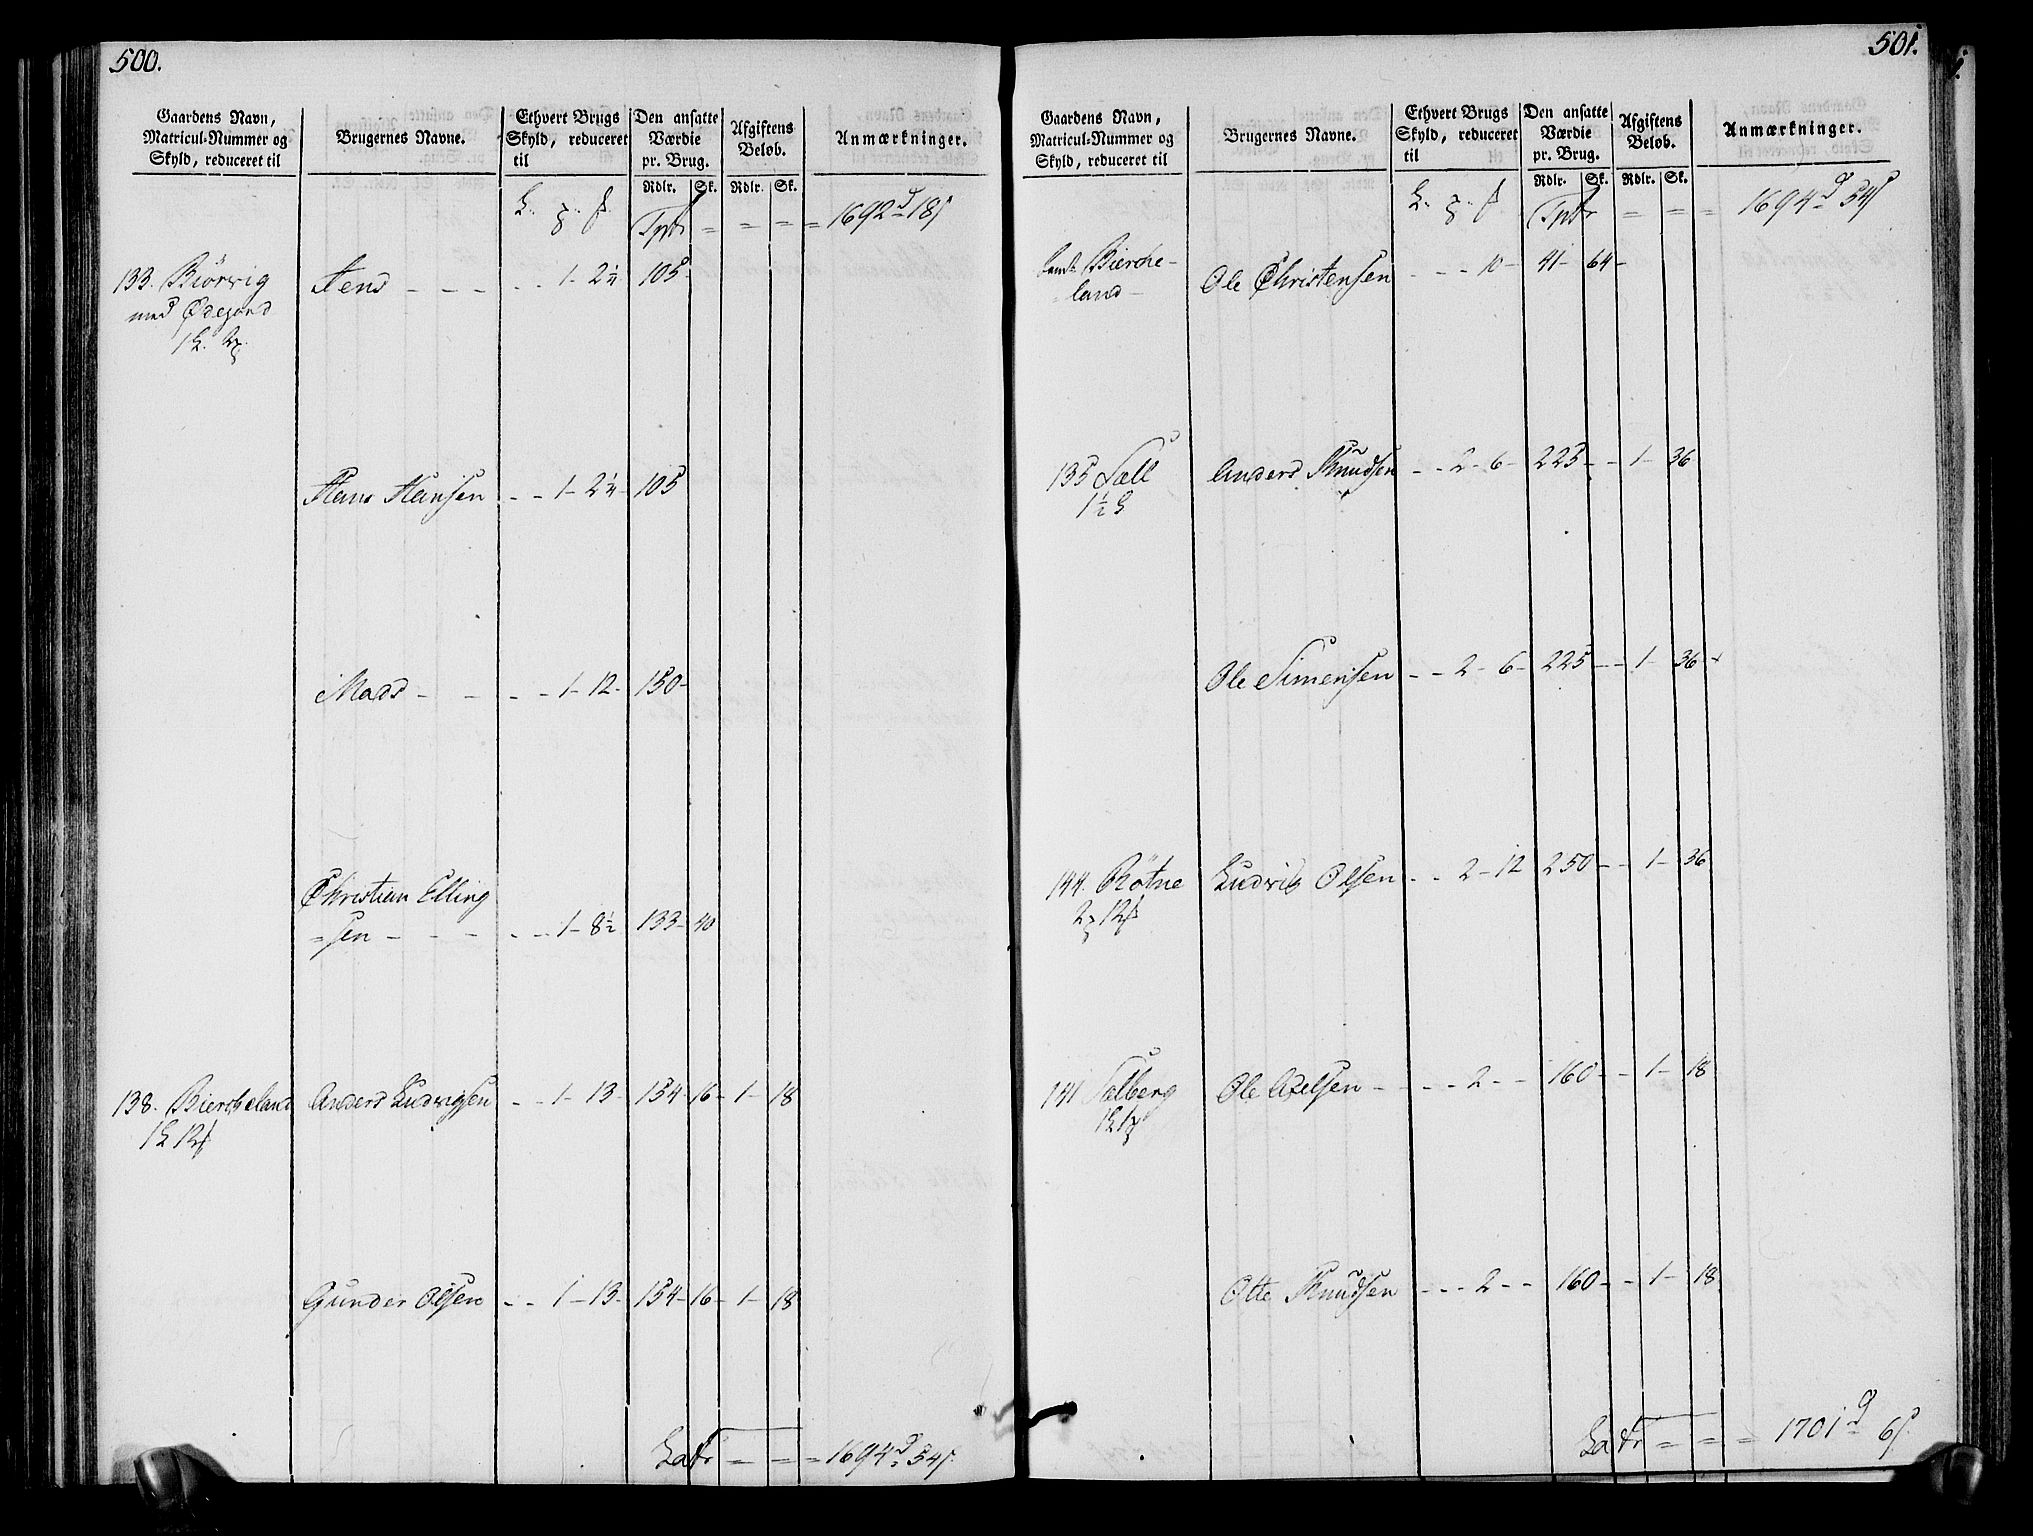 500.
Gaardens Navn, Matricul-Nummer og Skyld, reduceret til
Brugernes Navne.
Ethvert Brugs Skyld, reduceret til
Den ansatte Værdie pr. Brug.
Afgiftens Beløb.
Anmærkninger.
Rdlr. Sk. Rdlr. Sk.
Tptr = = = = 1692 d 18 s
133. Biørvig Jens - - - - - 1 - 2 1/4 - 105 -
med Ødegaard
1 L. 2
Hans Hansen - - 1 - 2 1/4 - 105
Mads - - - - 1 - 12 - 150 -
Christian Elling
=sen - - - - - 1 - 8 1/2 133 - 40
138. Biercheland Anders Ludvigsen - - 1 - 13 - 154 - 16 - 1 - 18
1 L 12
Gunder Olsen - - 1 - 13 - 154 - 16 - 1 - 18
Latr = = = 1694 d 54 s
501.
Gaardens Navn, Matricul-Nummer og Skyld, reduceret til
Brugernes Navne.
Ethvert Brugs Skyld, reduceret til
Den ansatte Værdie pr. Brug.
Afgiftens Beløb.
Anmærkninger.
Rdlr. Sk. Rdlr. Sk.
Tptr = = = 1694 d 54 s
Bierche-
land - Ole Christensen - - - 10 - 41 - 64 -
135 Sæll Anders Knudsen - - 2 - 6 - 225 - - 1 - 36
1 1/2 L
Ole Simensen - - 2 - 6 - 225 - - 1 - 36
144. Røtne Ludvig Olsen - - 2 - 12 250 - - 1 - 36
2 12
141 Sælberg Ole Axelsen - - - - 2 - - 160 - - 1 - 18
1 L 1
Otte Knudsen - - - 2 - - 160 - - 1 - 18
Latr = = = 1701 d 6 s